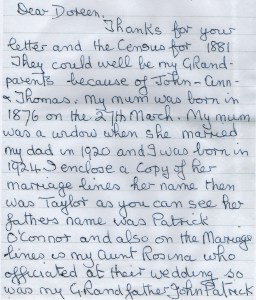 Dear Doreen,
Thanks for your
letter and the Census for 1881
They could well be my Grand-
parents because of John-Ann-
& Thomas. My mum was born in
1876 on the 27th March. My mum
was a widow when she married
my dad in 1920 and I was born in
1924. I enclose a Copy of her
marriage lines her name then
was Taylor as you can see her
fathers name was Patrick
O'Connor and also on the Marriage
lines is my Aunt Rosina who
officiated at their wedding so
was my Grandfather John Patrick